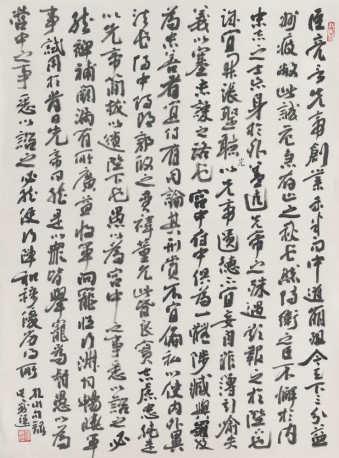 臣亮言先帝創業未半而中道崩殂今天下三分益
州疲敝此誠危急存亡之秋也然侍衛之臣不懈於內
忠志之士忘身於外者蓋追先帝之殊遇欲報之於陛下也
誠宜開張聖聽以光先帝遺德不宜妄自菲薄引喻失
義以塞忠諫之路也宮中府中俱為一體陟臧及
為忠善者宜付有司論其刑賞不宜偏私以使內外異
法也侍中侍郎郭攸之費禕董允此皆良實志慮忠純是
以先帝簡拔以遺陛下也愚以為宮中之事悉以諮之必
能裨補闕漏有所廣益將軍向寵性行淑均曉暢軍
事試用於昔日先帝曰能是以眾皆舉寵為督愚以為
營中之事悉以諮之必能使行陣和穆優劣得所